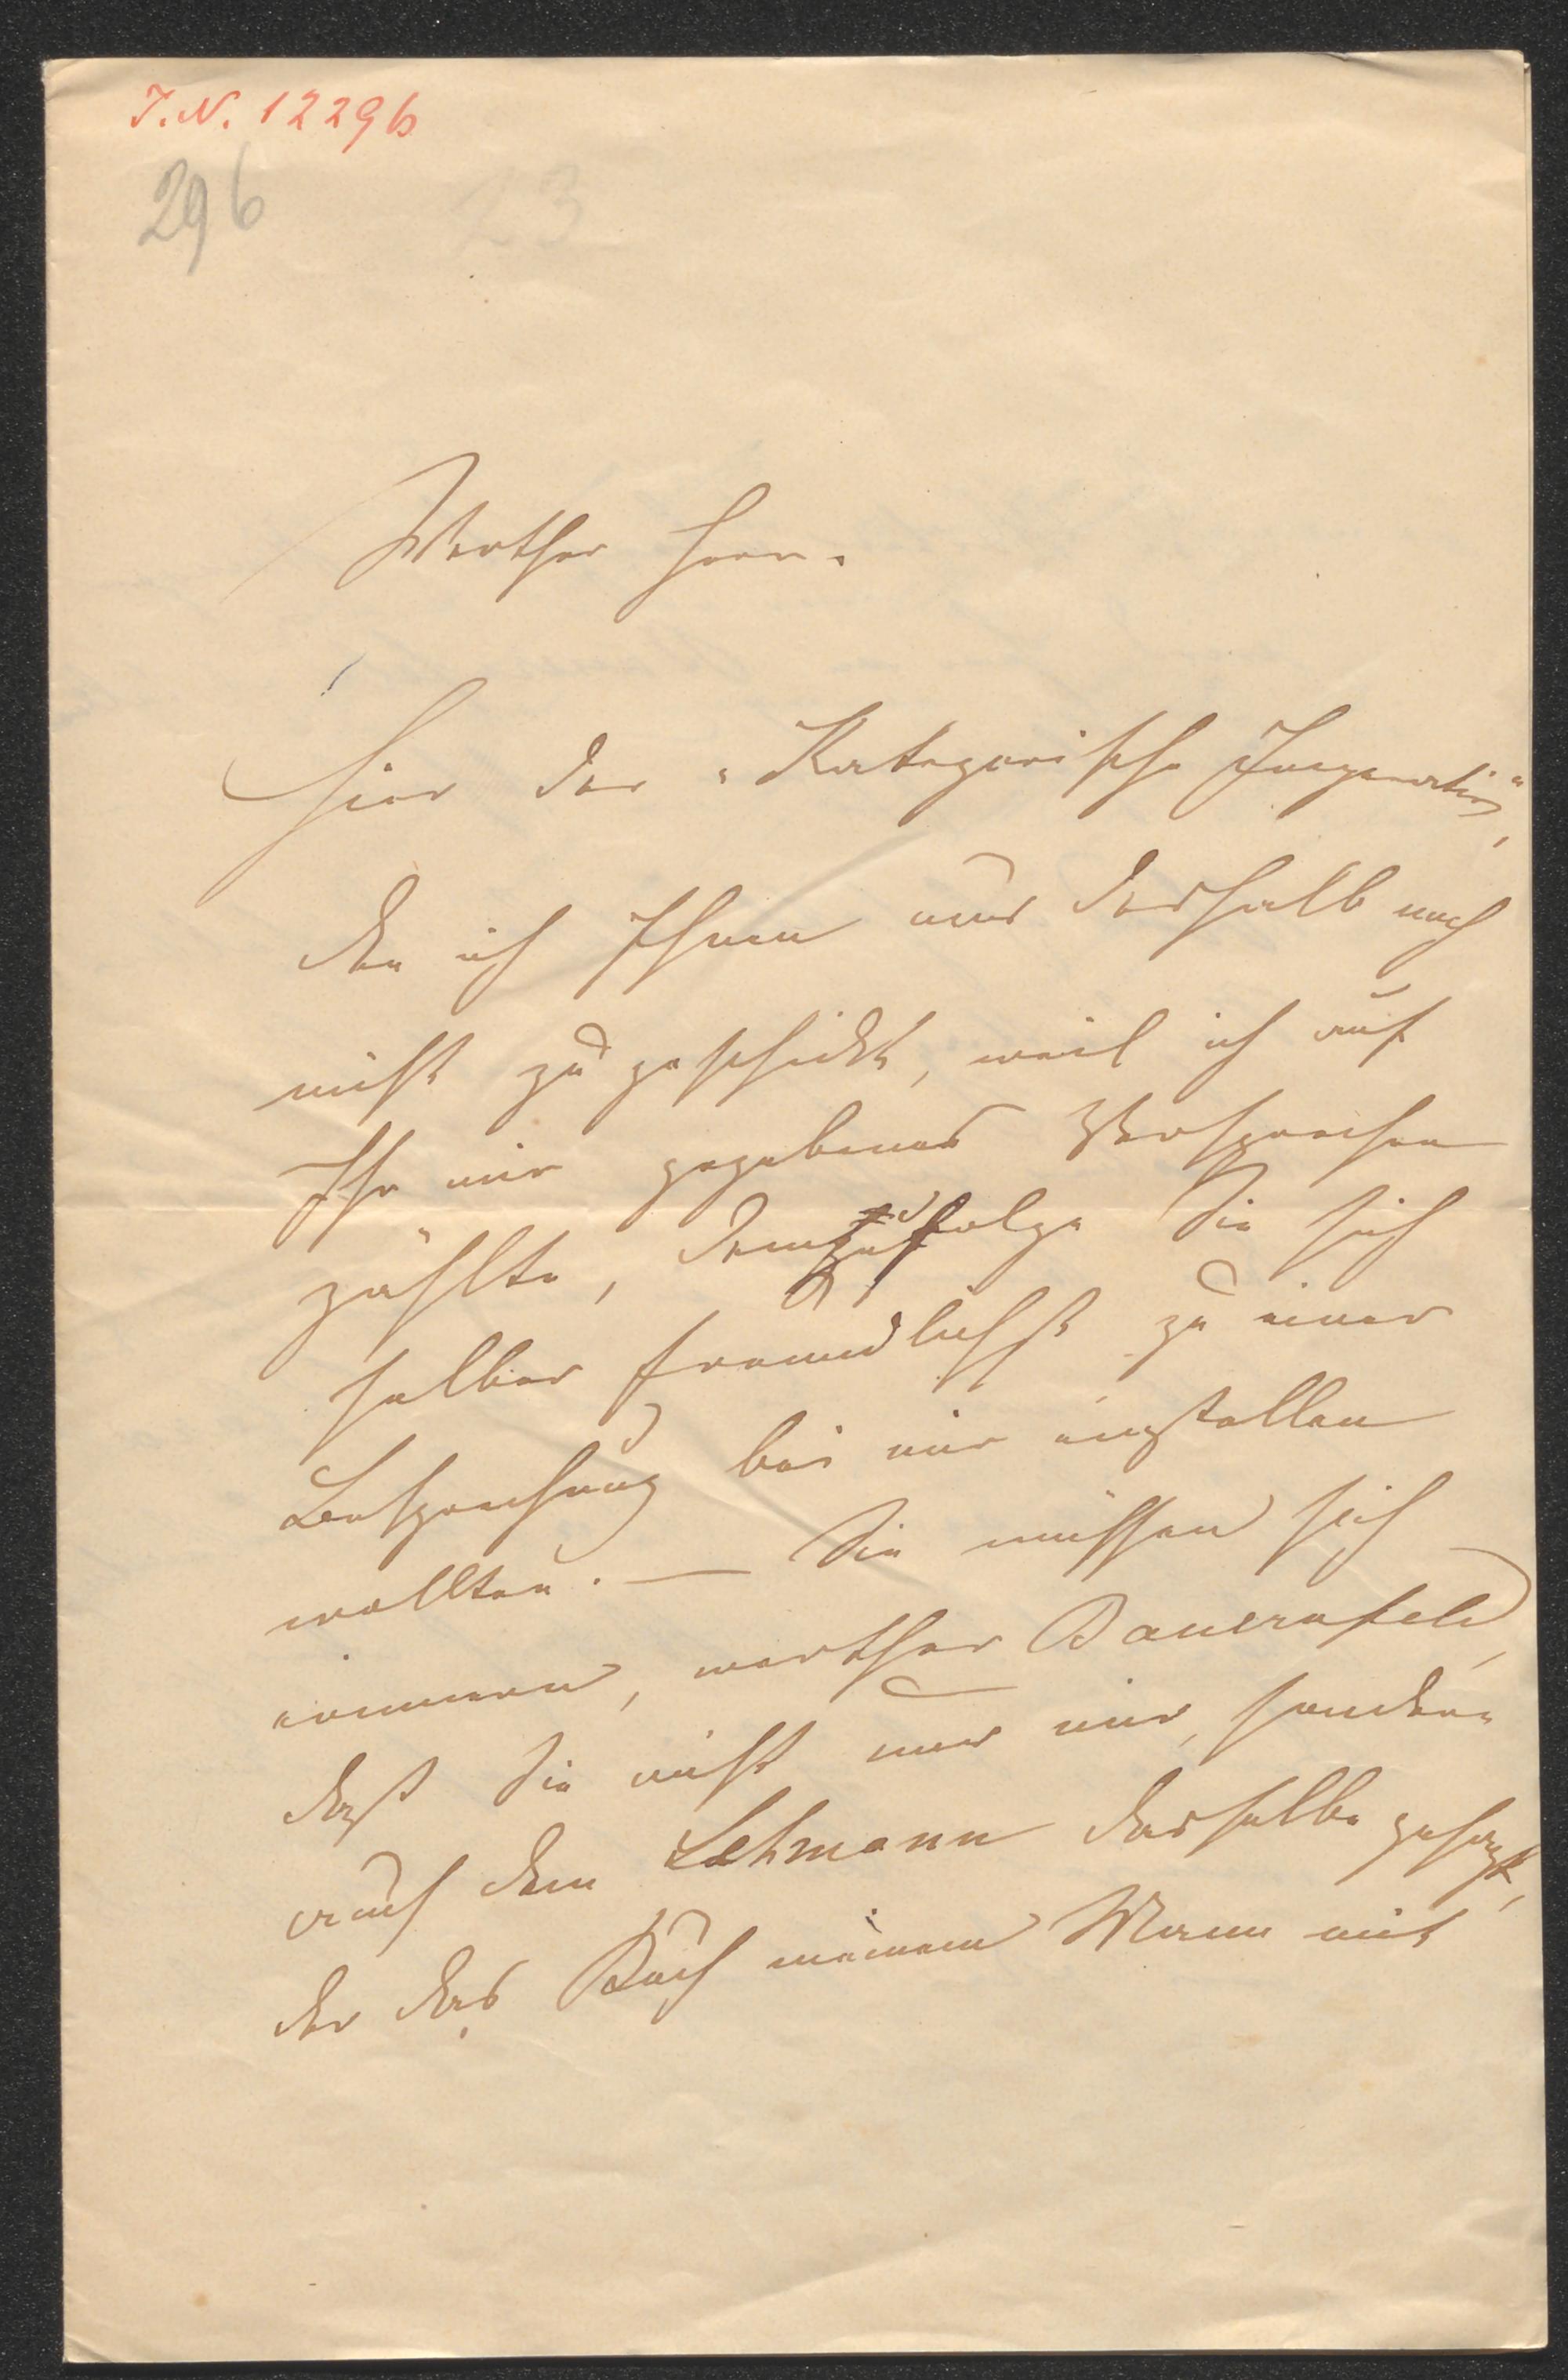 I.N. 12296
296
23
Werther Herr.
Hier der „Kategorische Imperativ",
den ich Ihnen nur deshalb noch
nicht zu geschickt, weil ich auf
Ihr mir gegebenes Versprechen
zählte, demzufolge Sie sich
selber freundlichst zu einer
Besprechung bei mir einstellen
wollten. — Sie müssen sich
erinnern, werther Bauernfeld,
daß Sie nicht nur mir, sondern
auch dem Lehmann dasselbe gesagt,
der das Buch meinem Mann mit